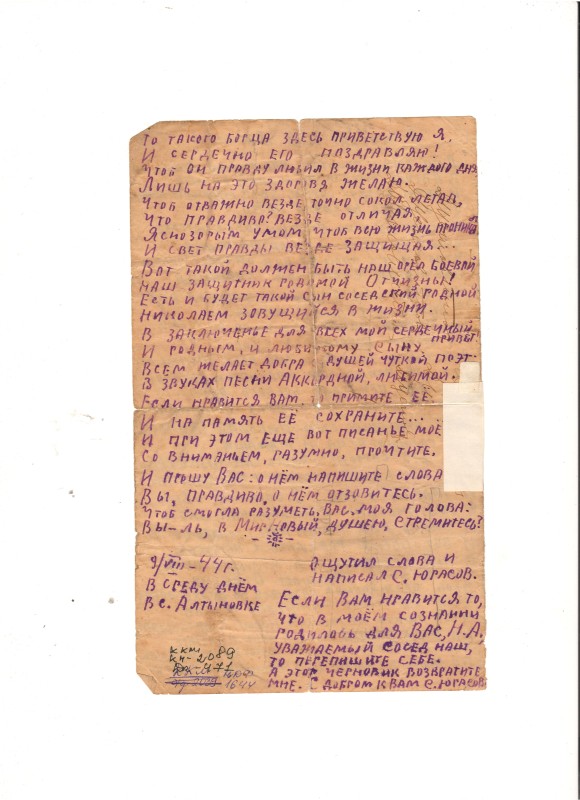 То такого борца здесь приветствую я,
И сердечно его поздравляю!
Чтоб он правду любил в жизни каждого дня
Лишь на это здоровя желаю.
Чтоб отважно везде, точно сокол летав,
Что правдиво? Везде отличая,
Яснозорым умом, чтоб всю жизнь проникал
И свет правды везде защищая...
Вот такой должен быть наш орёл боевой
Наш защитник родимой Отчизны!
Есть и будет такой сын соседский родной
Николаем зовущийся в жизни.
В заключенье для всех мой сердечный
привет!
И родным, и любимому сыну
Всем желает добра душей чуткой поэт-
В звуках песни аккордной, любимой.
Если нравится Вам, то примите её
И на память её сохраните...
И при этом еще вот писанье моё
Со вниманьем, разумно, прочтите.
И прошу Вас: о нём напишите слова
Вы, правдиво, о нём отзовитесь.
Чтоб смогла разуметь Вас моя голова:
Вы-ль, в Мир новый, душею, стремитесь?
9/VIII-44г.
В среду днём
В с. Алтыновке
Ощутил слова и
написал С. Юрасов.
Если Вам нравится то,
что в моём сознании
родилось для Вас, Н.А.
уважаемый сосед наш,
то перепишите себе.
А этот черновик возвратите
мне. С добром к Вам С. Юрасов
ККМ
КП-2089
1644